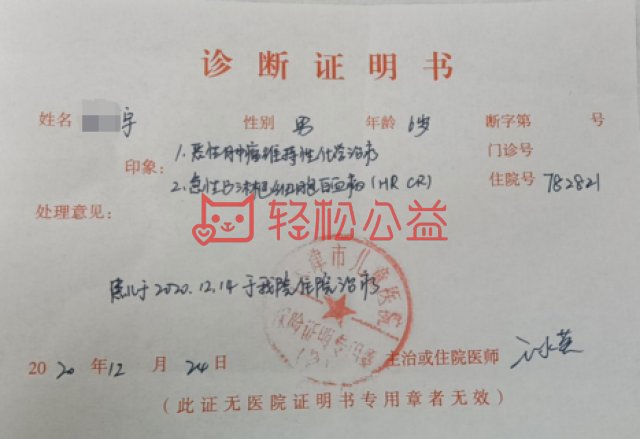 诊断证明书
姓名 宇 性别 男 年龄 6岁 断字第 号
印象: 1.恶性肿瘤维持性化学治疗 门诊号
2.急性B淋巴细胞白血病(HR CR) 住院号 782821
处理意见:
轻松公益
患儿于2020.12.14于我院住院治疗
津市儿童医院
保险证明专用章
主治或住院医师
2020年12月24日
(此证无医院证明书专用章者无效)